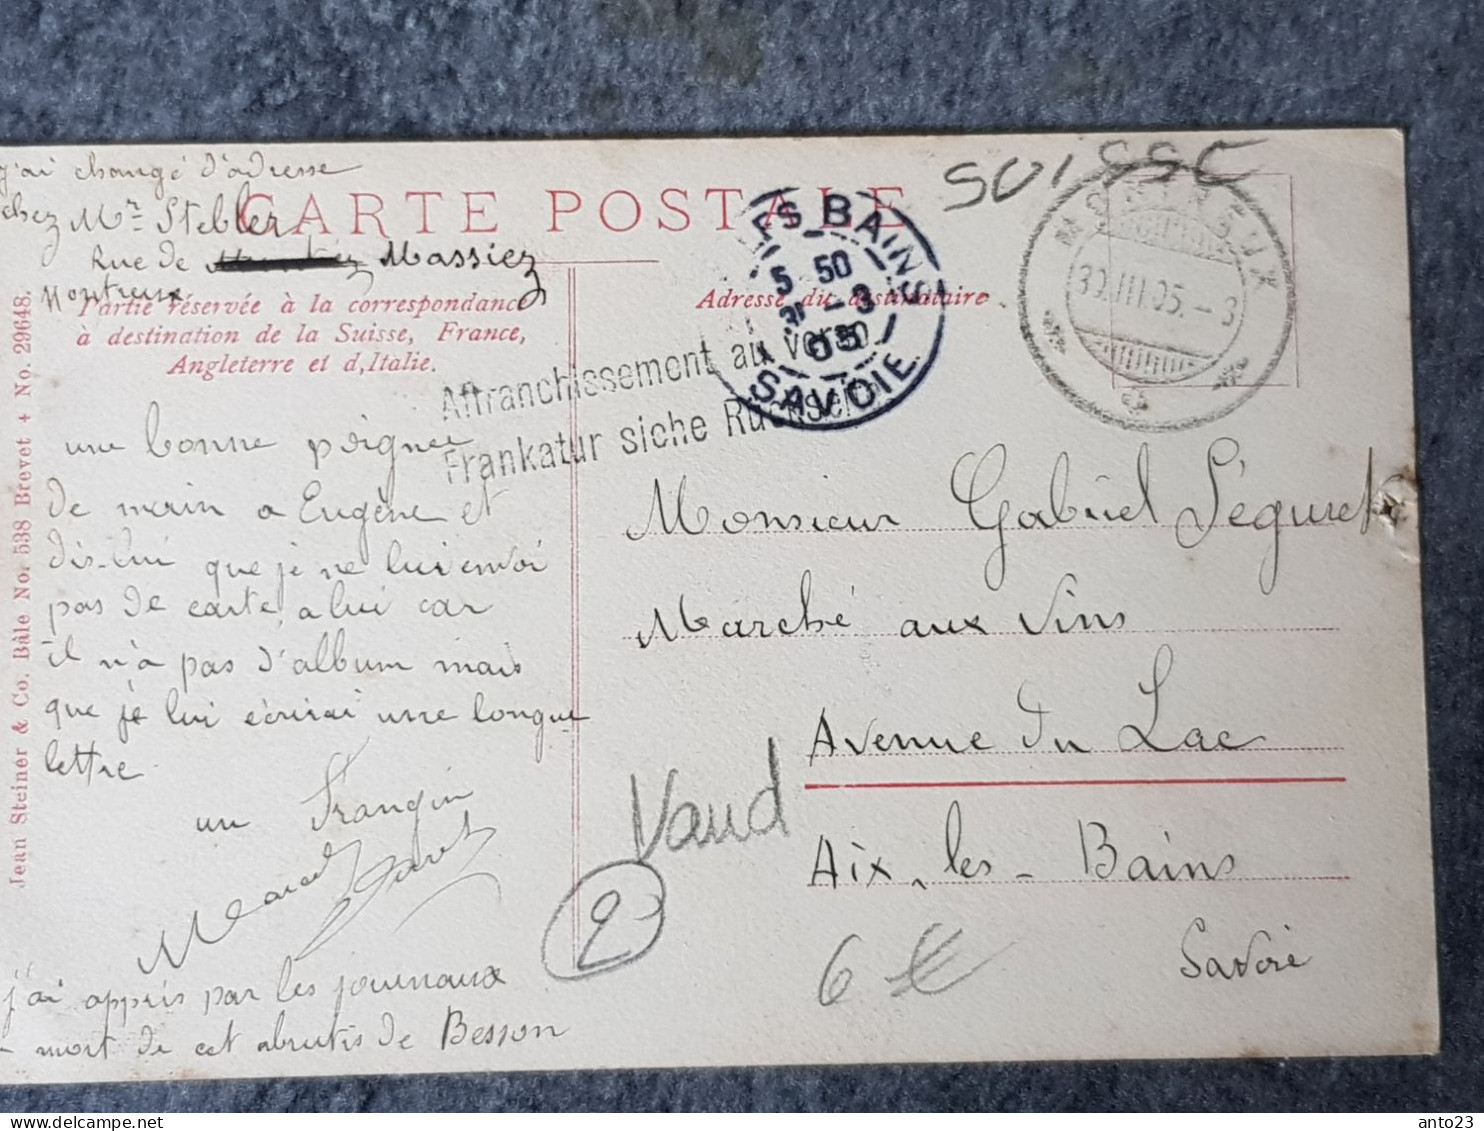 j'ai changé d'adresse
chez Mr Stebler
Rue de Massiez
Montreux
CARTE POSTALE
SUISSE
MONTREUX
30.III.05. - 3
LES BAINS
5 50
-3
05
SAVOIE
Partie réservée à la correspondance
à destination de la Suisse, France,
Angleterre et d,Italie.
Adresse du destinataire
Affranchissement au verso
Frankatur siehe Rückseite
Jean Steiner & Co. Bâle No. 538 Brevet + No. 29648.
une bonne poignée
de main a Eugène et
dis-lui que je ne lui envoi
pas de carte, a lui car
il n'a pas d'album mais
que je lui écrirai une longue
lettre.
un frangin
Marcel
j'ai appris par les journaux
mort de cet abrutis de Besson
Monsieur Gabriel Séguret
Marché aux Vins
Avenue du Lac
Aix-les-Bains
Savoie
Vaud
2
6 €
anto23